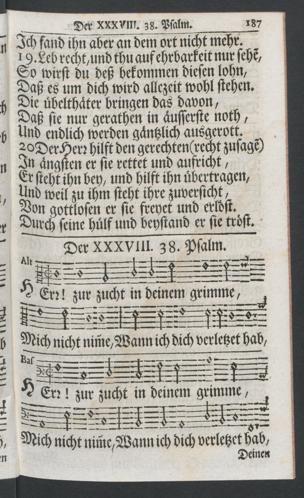 Der XXXVIII. 38. Psalm. 187
Ich fand ihn aber an dem ort nicht mehr.
19. Leb recht, und thu auf ehrbarkeit nur sehẽ,
So wirst du deß bekommen diesen lohn,
Daß es um dich wird allezeit wohl stehen.
Die übelthäter bringen das davon,
Daß sie nur gerathen in äusserste noth,
Und endlich werden gäntzlich ausgerott.
20 Der Herr hilft den gerechten (recht zusagẽ)
In ängsten er sie rettet und aufricht,
Er steht ihn bey, und hilft ihn übertragen,
Und weil zu ihm steht ihre zuversicht,
Von gottlosen er sie freyet und erlöst.
Durch seine hülf und beystand er sie tröst.
Der XXXVIII. 38. Psalm.
Alt
HErr! zur zucht in deinem grimme,
Mich nicht nim̃e, Wann ich dich verletzet hab,
Bas
HErr! zur zucht in deinem grimme,
Mich nicht nim̃e, Wann ich dich verletzet hab,
Deinen